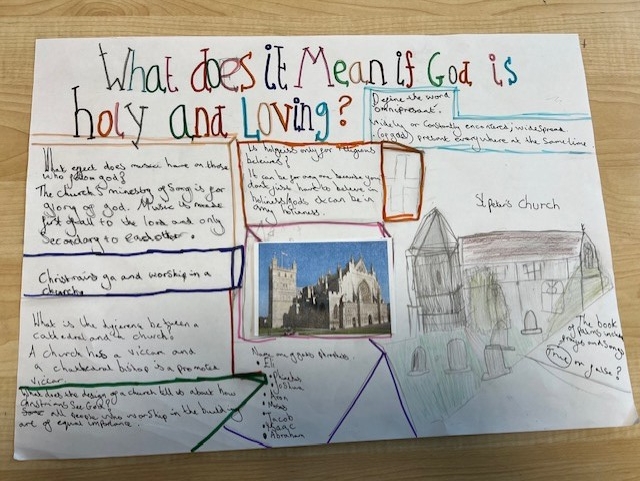 What does it Mean if God is
holy and Loving?
Define the word
omnipresant.
widely or constantly encontered; widespread
(of god) present everywhere at the same time
What does music have on those
who follow god?
The church's ministry of song is for
glory of god. Music is made
first of all to the lord and only
secondary to eachother.
Christians go and worship in a
church
What is the difference between a
cathedral and a church?
A church has a viccan and
a chathedral bishop is a promoted
viccar.
What does the design of a church tell us about how
christians see God?
all people who worship in the building
are of equal importance.
Is holyness only for religious
believers?
It can be for any one because you
dont just have to believe in
holiness/gods it can be in
any holiness.
Name one of gods
• Eli
• Joshua
• Aron
• Moses
• Jacob
• Isaac
• Abraham
St. Peter's Church
The book
of psalms includes
prayers and songs
True or false?